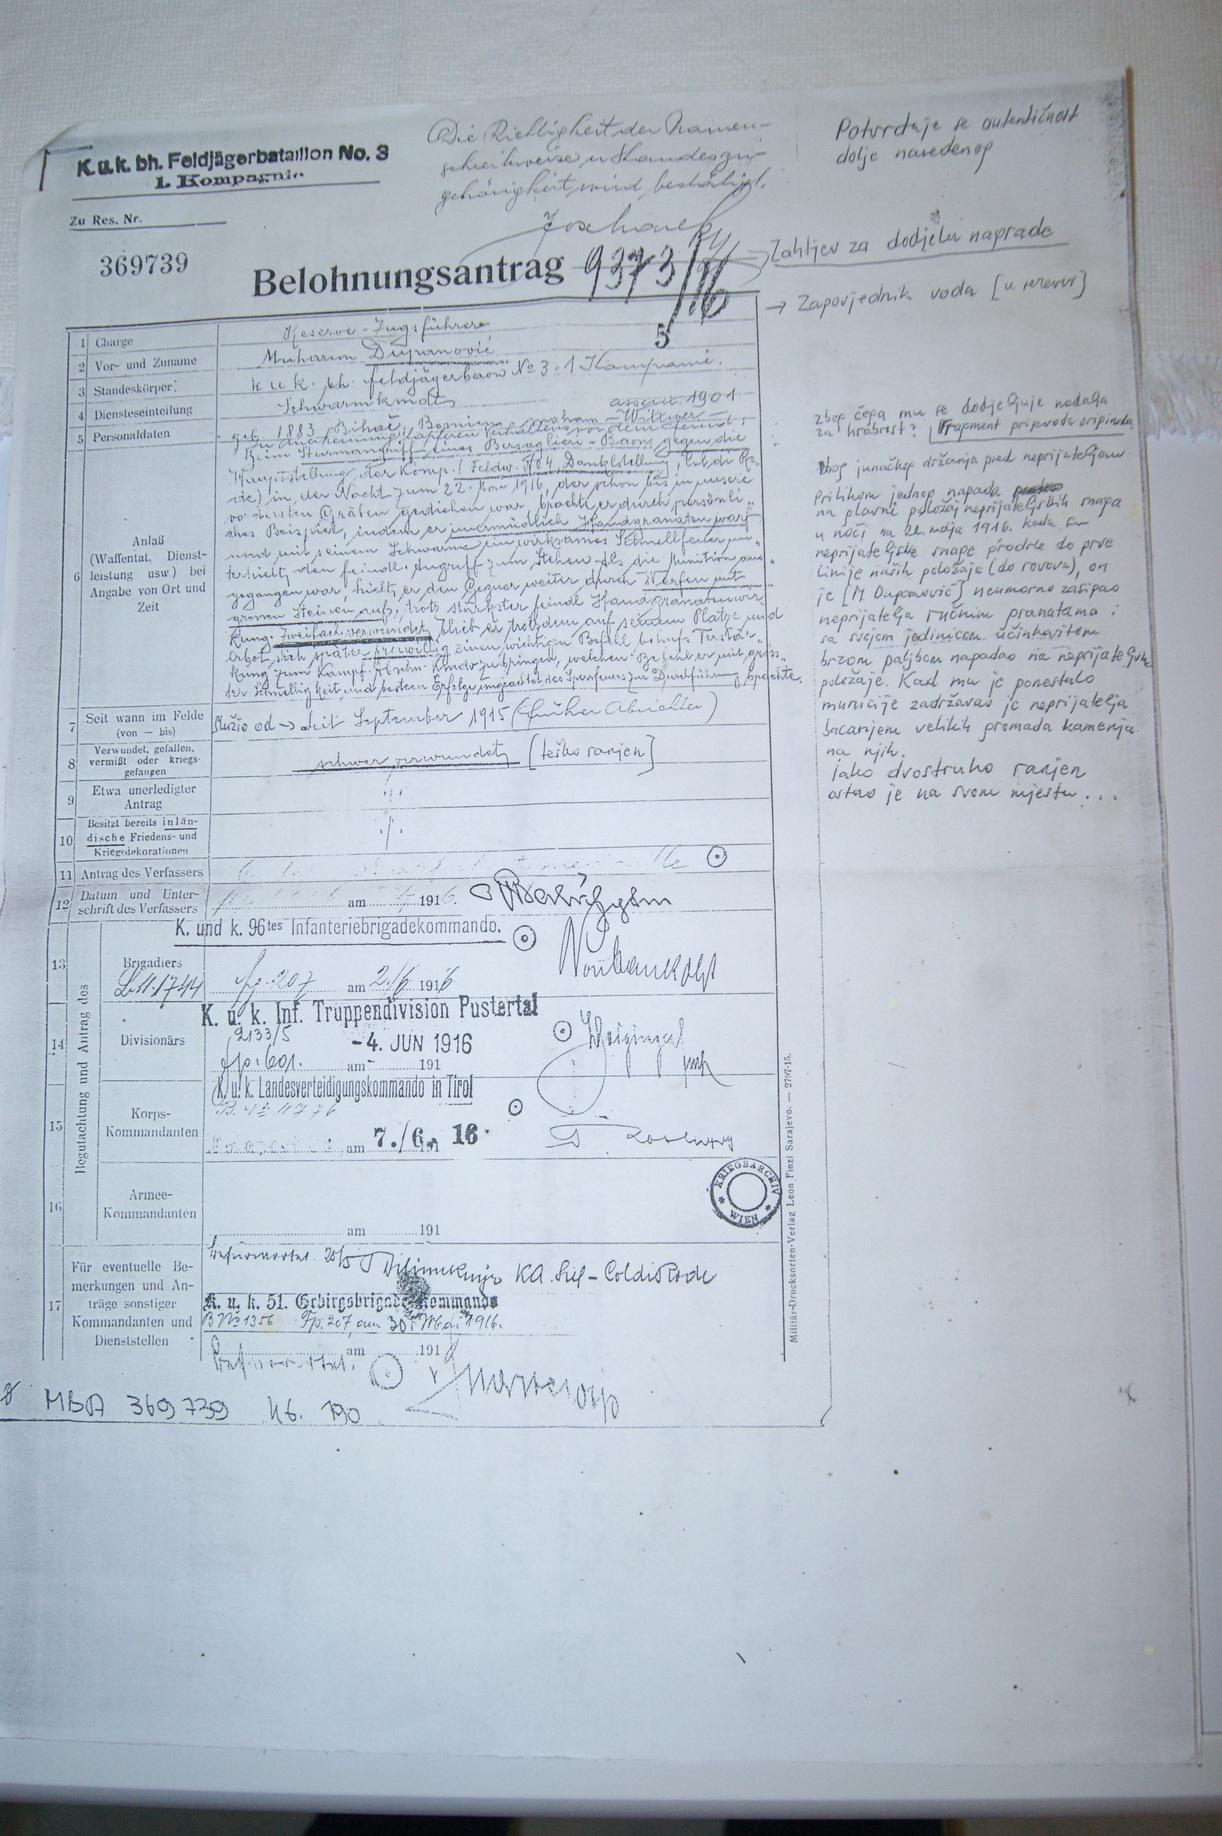 K.u.k. bh. Feldjägerbataillon No. 3
1. Kompagnie.
Zu Res. Nr.
369739
Die Richtigkeit der Namen-
schreibweise u. Standeszu-
gehörigkeit wird bestätigt.
Potvrđuje se autentičnost
dolje navedenog
Belohnungsantrag 9373/16
5
Zahtjev za dodjelu nagrade
→ Zapovjednik voda [u rezervi]
1 Charge
Reserve-Zugsführer
2 Vor- und Zuname
Muharrem Dupanović
3 Standeskörper:
k. u. k. bh. Feldjägerbaon No 3. 1 Kompanie.
4 Diensteseinteilung
Schwarmkmdt
5 Personaldaten
geb. 1883, Bihać, Bosnien
assent. 1901
6 Anlaß (Waffentat, Dienst-
leistung usw) bei
Angabe von Ort und
Zeit
Beim Sturmangriff eines Bersaglieri-Baons gegen die
Hauptstellung der Komp. (Feldw. No 4,
in der Nacht zum 22. Mai 1916, der schon bis in unsere
vordersten Gräben gediehen war, brachte er durch persönli-
ches Beispiel, indem er unermüdlich Handgranaten warf
und mit seinem Schwarme ein wirksames Schnellfeuer un-
terhielt, den feindl. Angriff zum Stehen. Als die Munition aus-
gegangen war, hielt er den Gegner weiter durch Werfen mit
grossen Steinen auf, trotz stärkster feindl. Handgranatenwir-
kung. Zweifach verwundet, blieb er trotzdem auf seinem Platze und
erbot sich später freiwillig einen wichtigen Befehl behufs Verstär-
kung zum Kampf Abschn. Kmdo zu bringen, welchen Befehl er mit gröss-
ter Schnelligkeit und bestem Erfolge ungeachtet des Sperrfeuers zur Durchführung brachte.
7 Seit wann im Felde
(von — bis)
služio od → Seit September 1915 (früher Abrichter)
8 Verwundet, gefallen,
vermißt oder kriegs-
gefangen
schwer verwundet [teško ranjen]
9 Etwa unerledigter
Antrag
10 Besitzt bereits inlän-
dische Friedens- und
Kriegsdekorationen
11 Antrag des Verfassers
12 Datum und Unter-
schrift des Verfassers
am 1916.
Begutachtung und Antrag des
K. und k. 96tes Infanteriebrigadekommando.
13 Brigadiers
fp. 207 am 2./6 1916
K. u. k. Inf. Truppendivision Pustertal
14 Divisionärs
2133/5
-4. JUN 1916
fp: 601. am 191
K. u. k. Landesverteidigungskommando in Tirol
15 Korps-
Kommandanten
am 7./6. 191 16
16 Armee-
Kommandanten
am 191
KRIEGSARCHIV
WIEN
17 Für eventuelle Be-
merkungen und An-
träge sonstiger
Kommandanten und
Dienststellen
Befürwortet. 20/5
K. u. k. 51. Gebirgsbrigade-Kommando
B No 1356 Fp. 207, am 30. Mai 1916.
am 191
Befürwortet.
Militär-Drucksorten-Verlag Leon Finzi Sarajevo. — 2797-15.
MBA 369739 Kt. 190
zbog čega mu se dodjeljuje medalja
za hrabrost? Fragment prijevoda originala
Zbog junačkog držanja pred neprijateljem
prilikom jednog napada
na glavni položaj neprijateljskih snaga
u noći na 22. maja 1916. kada su
neprijateljske snage prodrle do prve
linije naših položaja (do rovova), on
je [M Dupanović] neumorno zasipao
neprijatelja ručnim granatama i
sa svojom jedinicom učinkovitom
brzom paljbom napadao na neprijateljske
položaje. Kad mu je ponestalo
municije zadržavao je neprijatelja
bacanjem velikih gromada kamenja
na njih.
Iako dvostruko ranjen
ostao je na svom mjestu ...